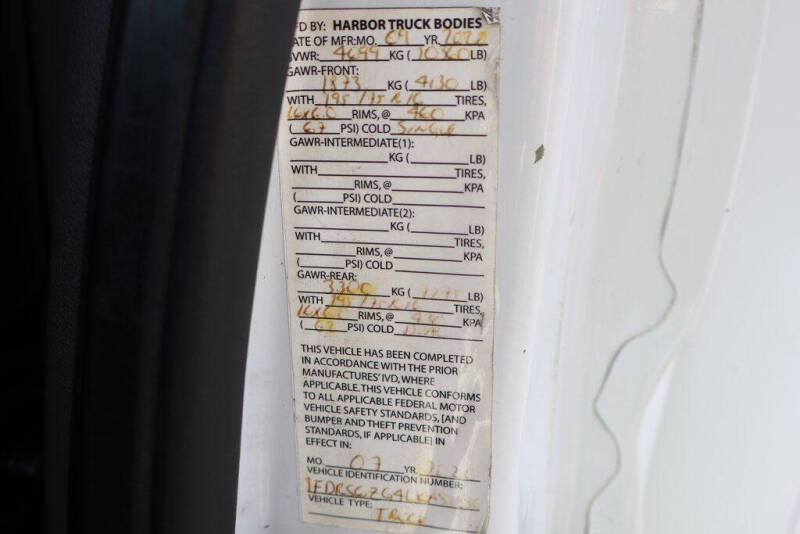 FD BY: HARBOR TRUCK BODIES
ATE OF MFR:MO. 09 YR.
GVWR: 4699 KG ( LB)
GAWR-FRONT:
1873 KG ( 4130 LB)
WITH 195/75R16 TIRES,
16x6.0 RIMS, @ 460 KPA
( 67 PSI) COLD SINGLE
GAWR-INTERMEDIATE(1):
KG ( LB)
WITH TIRES,
RIMS, @ KPA
( PSI) COLD
GAWR-INTERMEDIATE(2):
KG ( LB)
WITH TIRES,
RIMS, @ KPA
( PSI) COLD
GAWR-REAR:
3300 KG ( 7275 LB)
WITH 195/75R16 TIRES,
RIMS, @ KPA
( PSI) COLD
THIS VEHICLE HAS BEEN COMPLETED
IN ACCORDANCE WITH THE PRIOR
MANUFACTURES' IVD, WHERE
APPLICABLE. THIS VEHICLE CONFORMS
TO ALL APPLICABLE FEDERAL MOTOR
VEHICLE SAFETY STANDARDS, [AND
BUMPER AND THEFT PREVENTION
STANDARDS, IF APPLICABLE] IN
EFFECT IN:
MO. 07 YR.
VEHICLE IDENTIFICATION NUMBER:
VEHICLE TYPE:
TRUCK